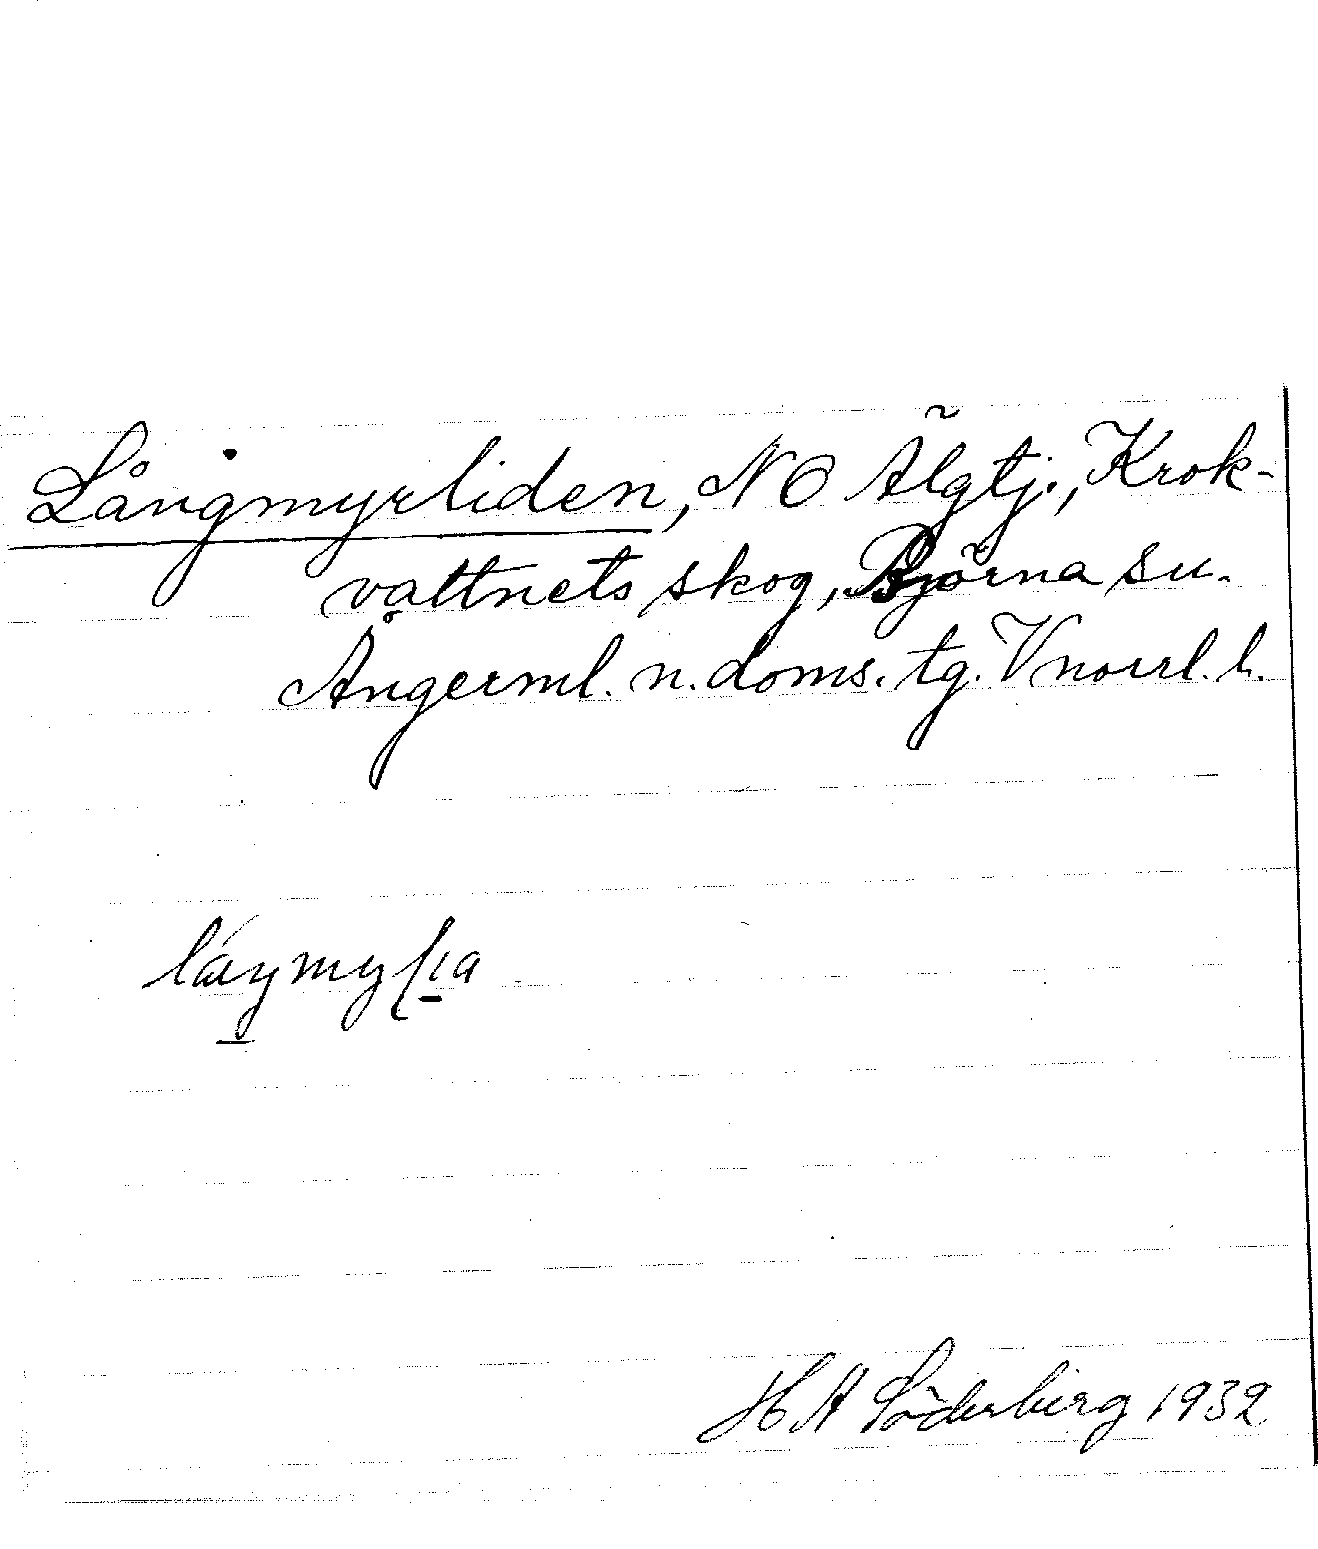 Långmyrliden, NO Älgtj., Krok-
vattnets skog, Björna sn.
Ångerml. n. doms. tg. Vnorrl. l.
H A Söderberg 1932